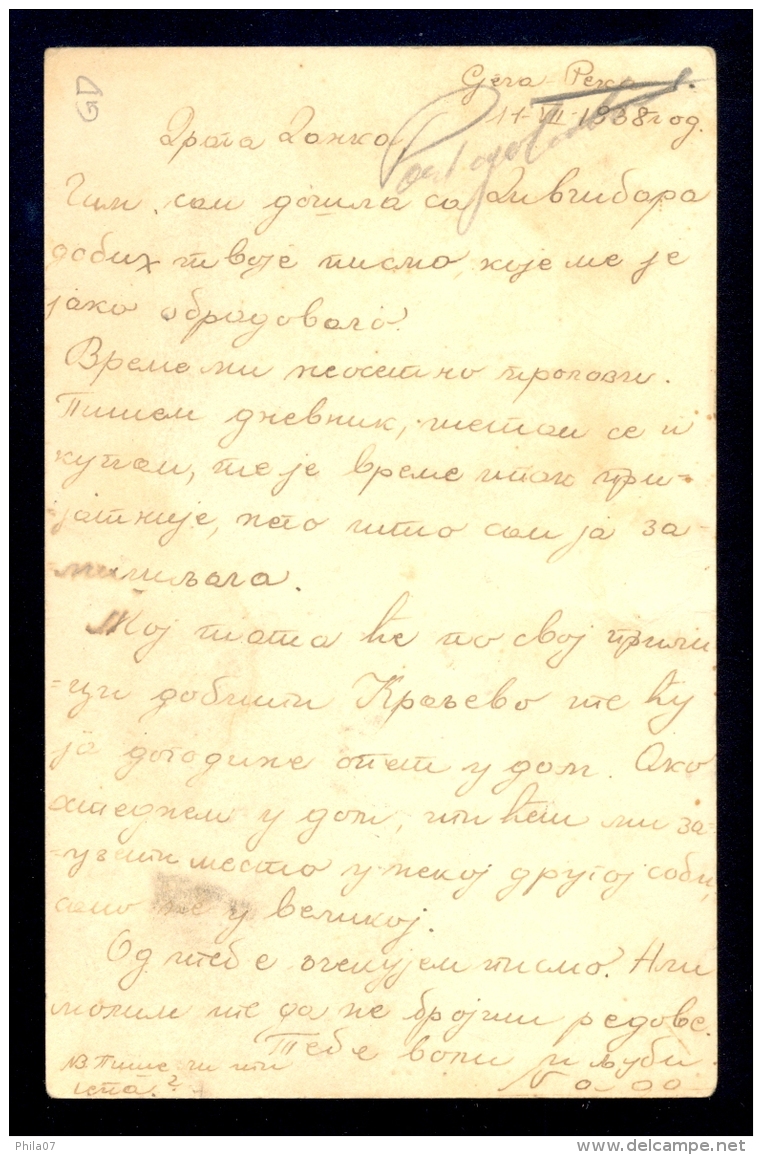 GD
Бела Река
11-VII-1938 год.
Драга Данка,
Чим сам дошла са Дивчибара
добих твоје писмо, које ме је
јако обрадовало.
Време ми неосетно пролази.
Пишем дневник, шетам се и
купам, те је време ипак при-
-јатније, него што сам ја за-
мишљала.
Мој тата ће по свој прили
-ци добити Краљево те ћу
ја догодине опет у дом. Ако
отеднем у дом, ти ћеш ми за-
-узети место у некој другој соби,
само не у великој.
Од тебе очекујем писмо. Али
молим те да не бројиш редове.
Тебе воли и љуби
NB Пише ли ти
Phila07
www.delcampe.net